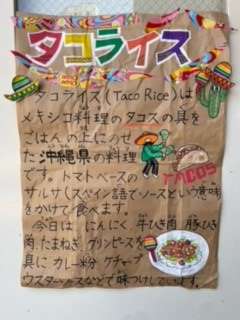 タコライス
タコライス(Taco Rice)は
メキシコ料理のタコスの具を
ごはんの上にのせ
た沖縄県の料理
です。トマトベースの
サルサ(スペイン語でソースという意味)
をかけて食べます。
TACOS
今日は、にんにく、牛ひき肉、豚ひき
肉、たまねぎ、グリンピースを
具に カレー粉 ケチャップ
ウスターソースなどで味つけしています。